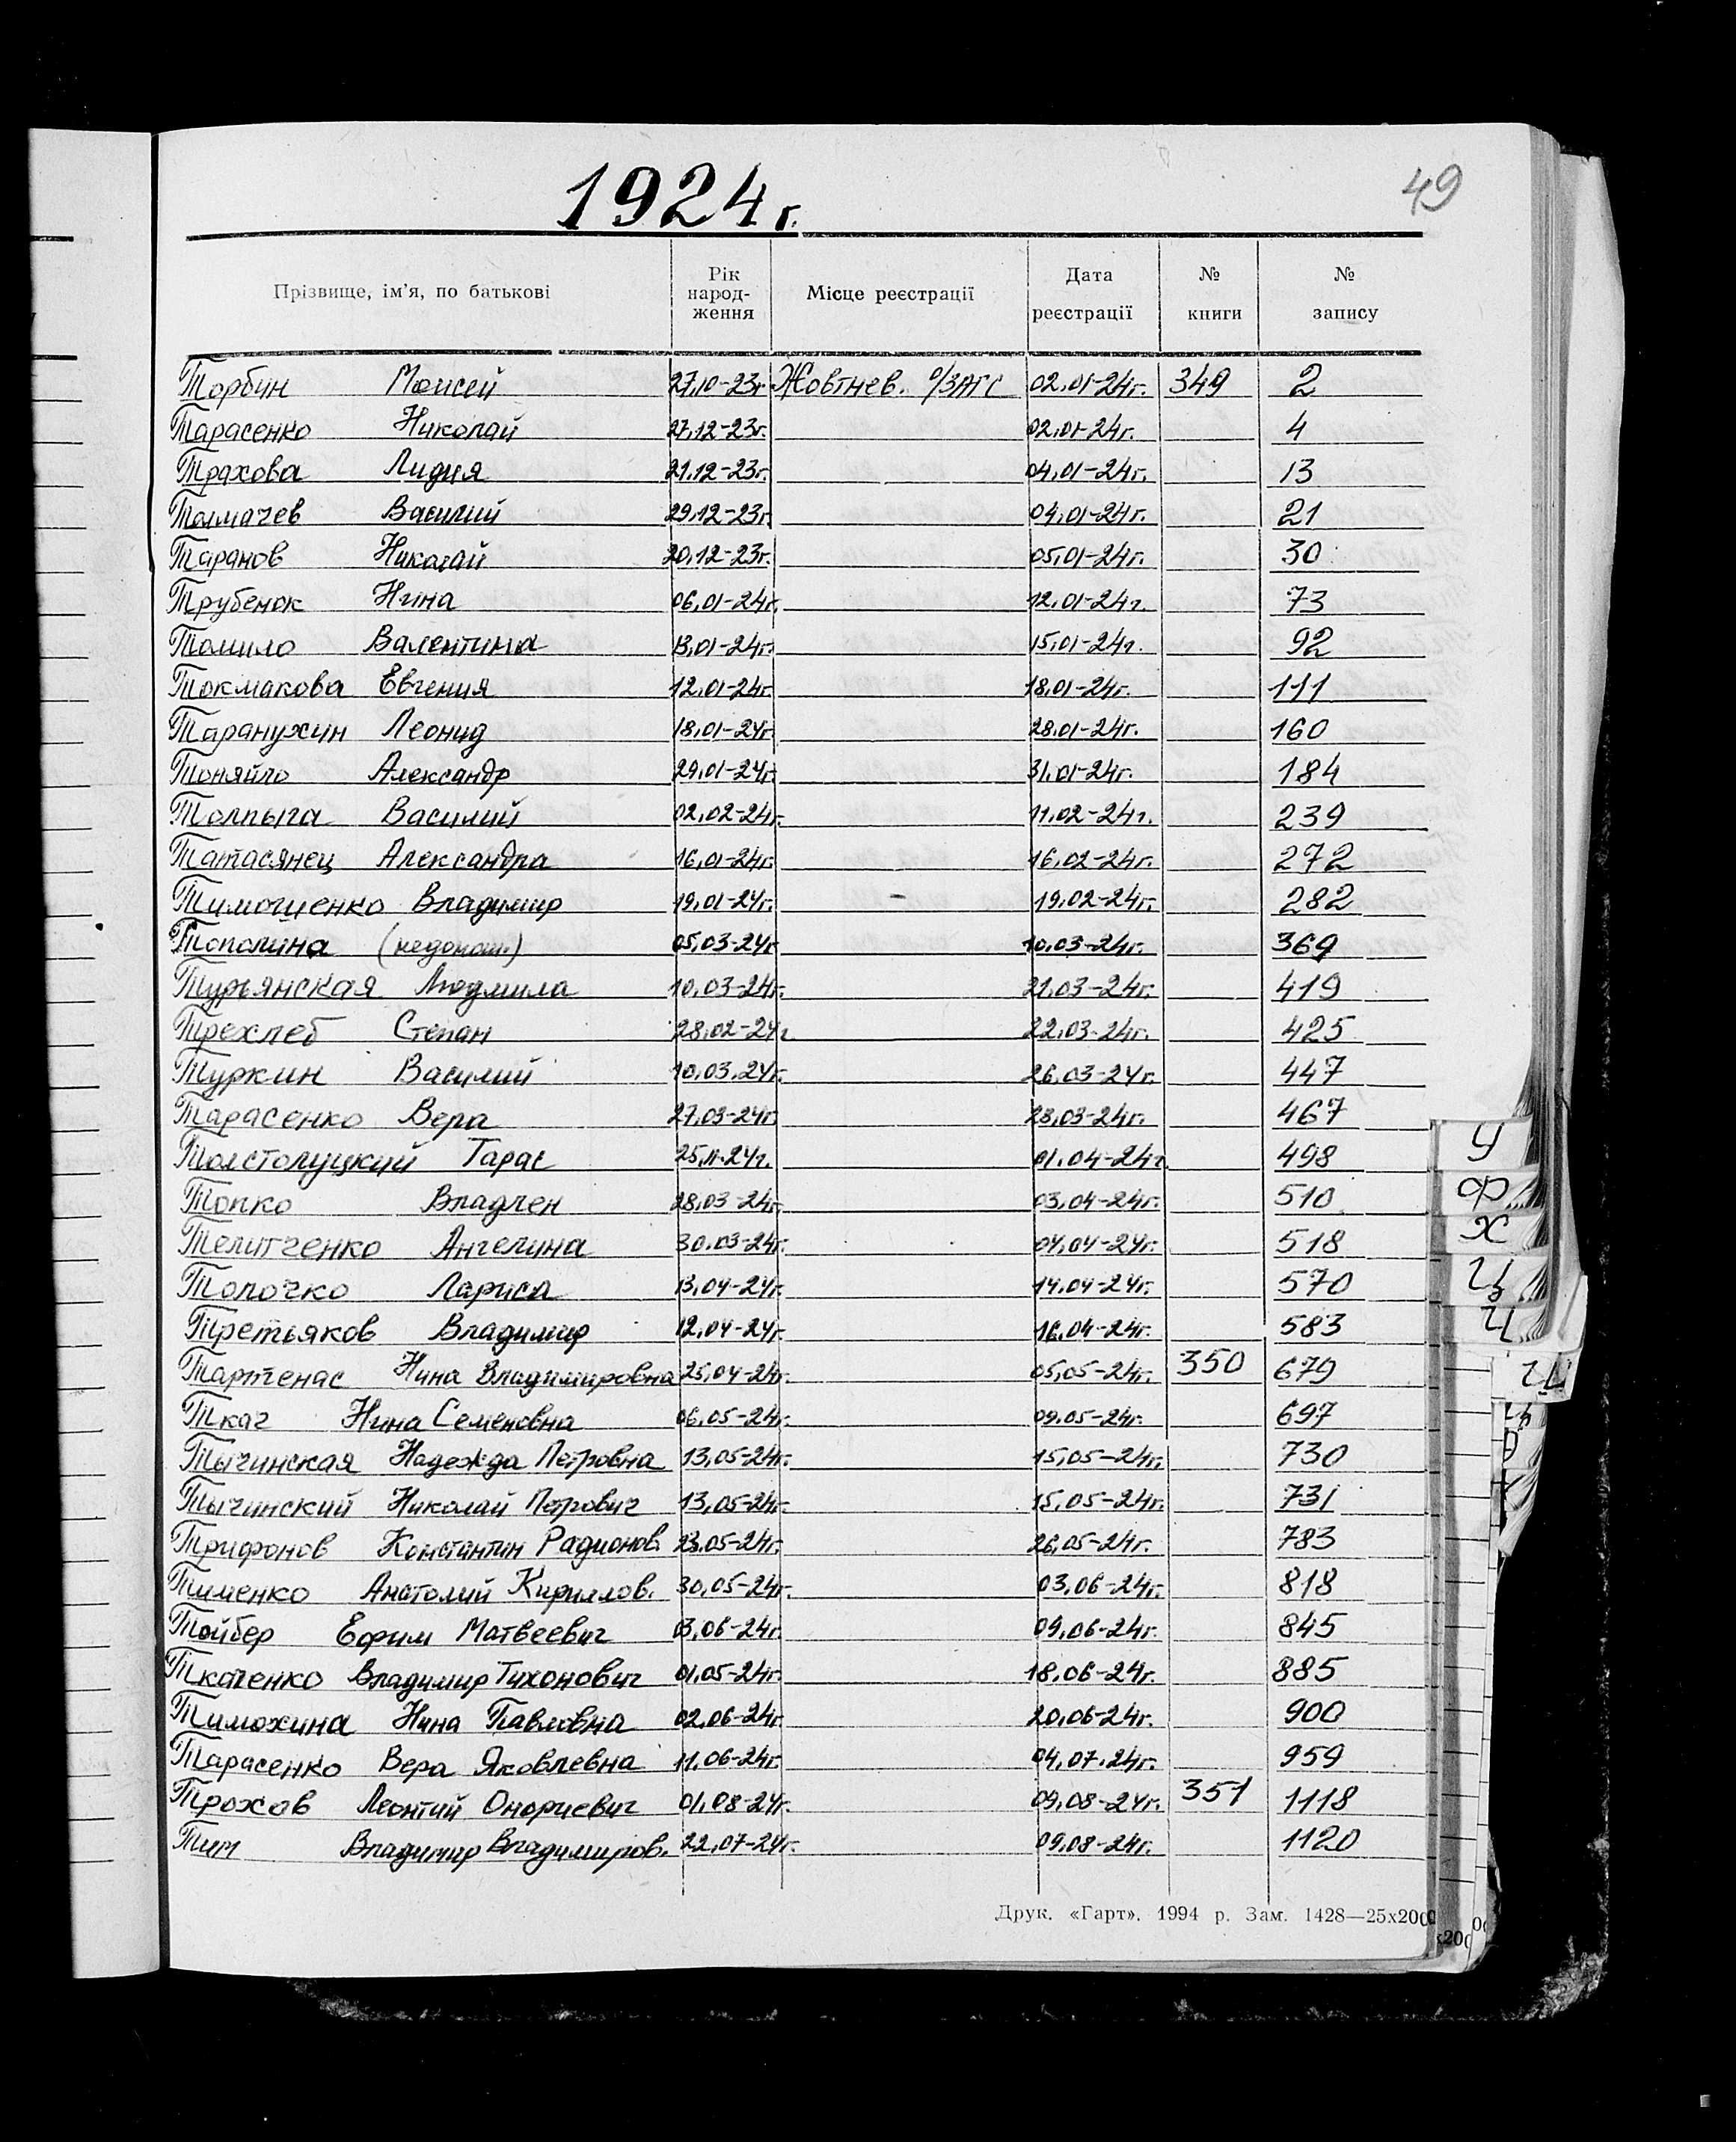 1924г.
49
Прізвище, ім'я, по батькові Рік народ-ження Місце реєстрації Дата реєстрації № книги № запису
Торбин Моисей 27,10-23г. Жовтнев. о/ЗАГС 02,01-24г. 349 2
Тарасенко Николай 27,12-23г. 02,01-24г. 4
Трахова Лидия 21,12-23г. 04,01-24г. 13
Толмачев Василий 29,12-23г. 04,01-24г. 21
Таранов Николай 20,12-23г. 05,01-24г. 30
Трубенок Нина 06,01-24г. 12,01-24г. 73
Томило Валентина 13,01-24г. 15,01-24г. 92
Токмакова Евгения 12,01-24г. 18,01-24г. 111
Таранухин Леонид 18,01-24г. 28,01-24г. 160
Тоняйло Александр 29,01-24г. 31,01-24г. 184
Толпыга Василий 02,02-24г. 11,02-24г. 239
Татасянец Александра 16,01-24г. 16,02-24г. 272
Тимошенко Владимир 19,01-24г. 19,02-24г. 282
Тополина (недонош.) 05,03-24г. 10,03-24г. 369
Турьянская Людмила 10,03-24г. 21,03-24г. 419
Трехлеб Степан 28,02-24г. 22,03-24г. 425
Туркин Василий 10,03,24г. 26,03-24г. 447
Тарасенко Вера 27,03-24г. 28,03-24г. 467
Толстолуцкий Тарас 25,11-24г. 01,04-24г. 498
Топко Владлен 28,03-24г. 03,04-24г. 510
Телитченко Ангелина 30,03-24г. 04,04-24г. 518
Толочко Лариса 13,04-24г. 14,04-24г. 570
Третьяков Владимир 12,04-24г. 16,04-24г. 583
Тартенас Нина Владимировна 25,04-24г. 05,05-24г. 350 679
Ткач Нина Семеновна 06,05-24г. 09,05-24г. 697
Тычинская Надежда Петровна 13,05-24г. 15,05-24г. 730
Тычинский Николай Петрович 13,05-24г. 15,05-24г. 731
Трифонов Константин Радионов. 23,05-24г. 26,05-24г. 783
Тименко Анатолий Кириллов. 30,05-24г. 03,06-24г. 818
Тойбер Ефим Матвеевич 03,06-24г. 09,06-24г. 845
Ткаченко Владимир Тихонович 01,05-24г. 18,06-24г. 885
Тимохина Нина Павловна 02,06-24г. 20,06-24г. 900
Тарасенко Вера Яковлевна 11,06-24г. 04,07,24г. 959
Трохов Леонтий Онориевич 01,08-24г. 09,08-24г. 351 1118
Тит Владимир Владимиров. 22,07-24г. 09,08-24г. 1120
Друк. «Гарт». 1994 р. Зам. 1428—25х200
У
Ф
Х
Ц
Ч